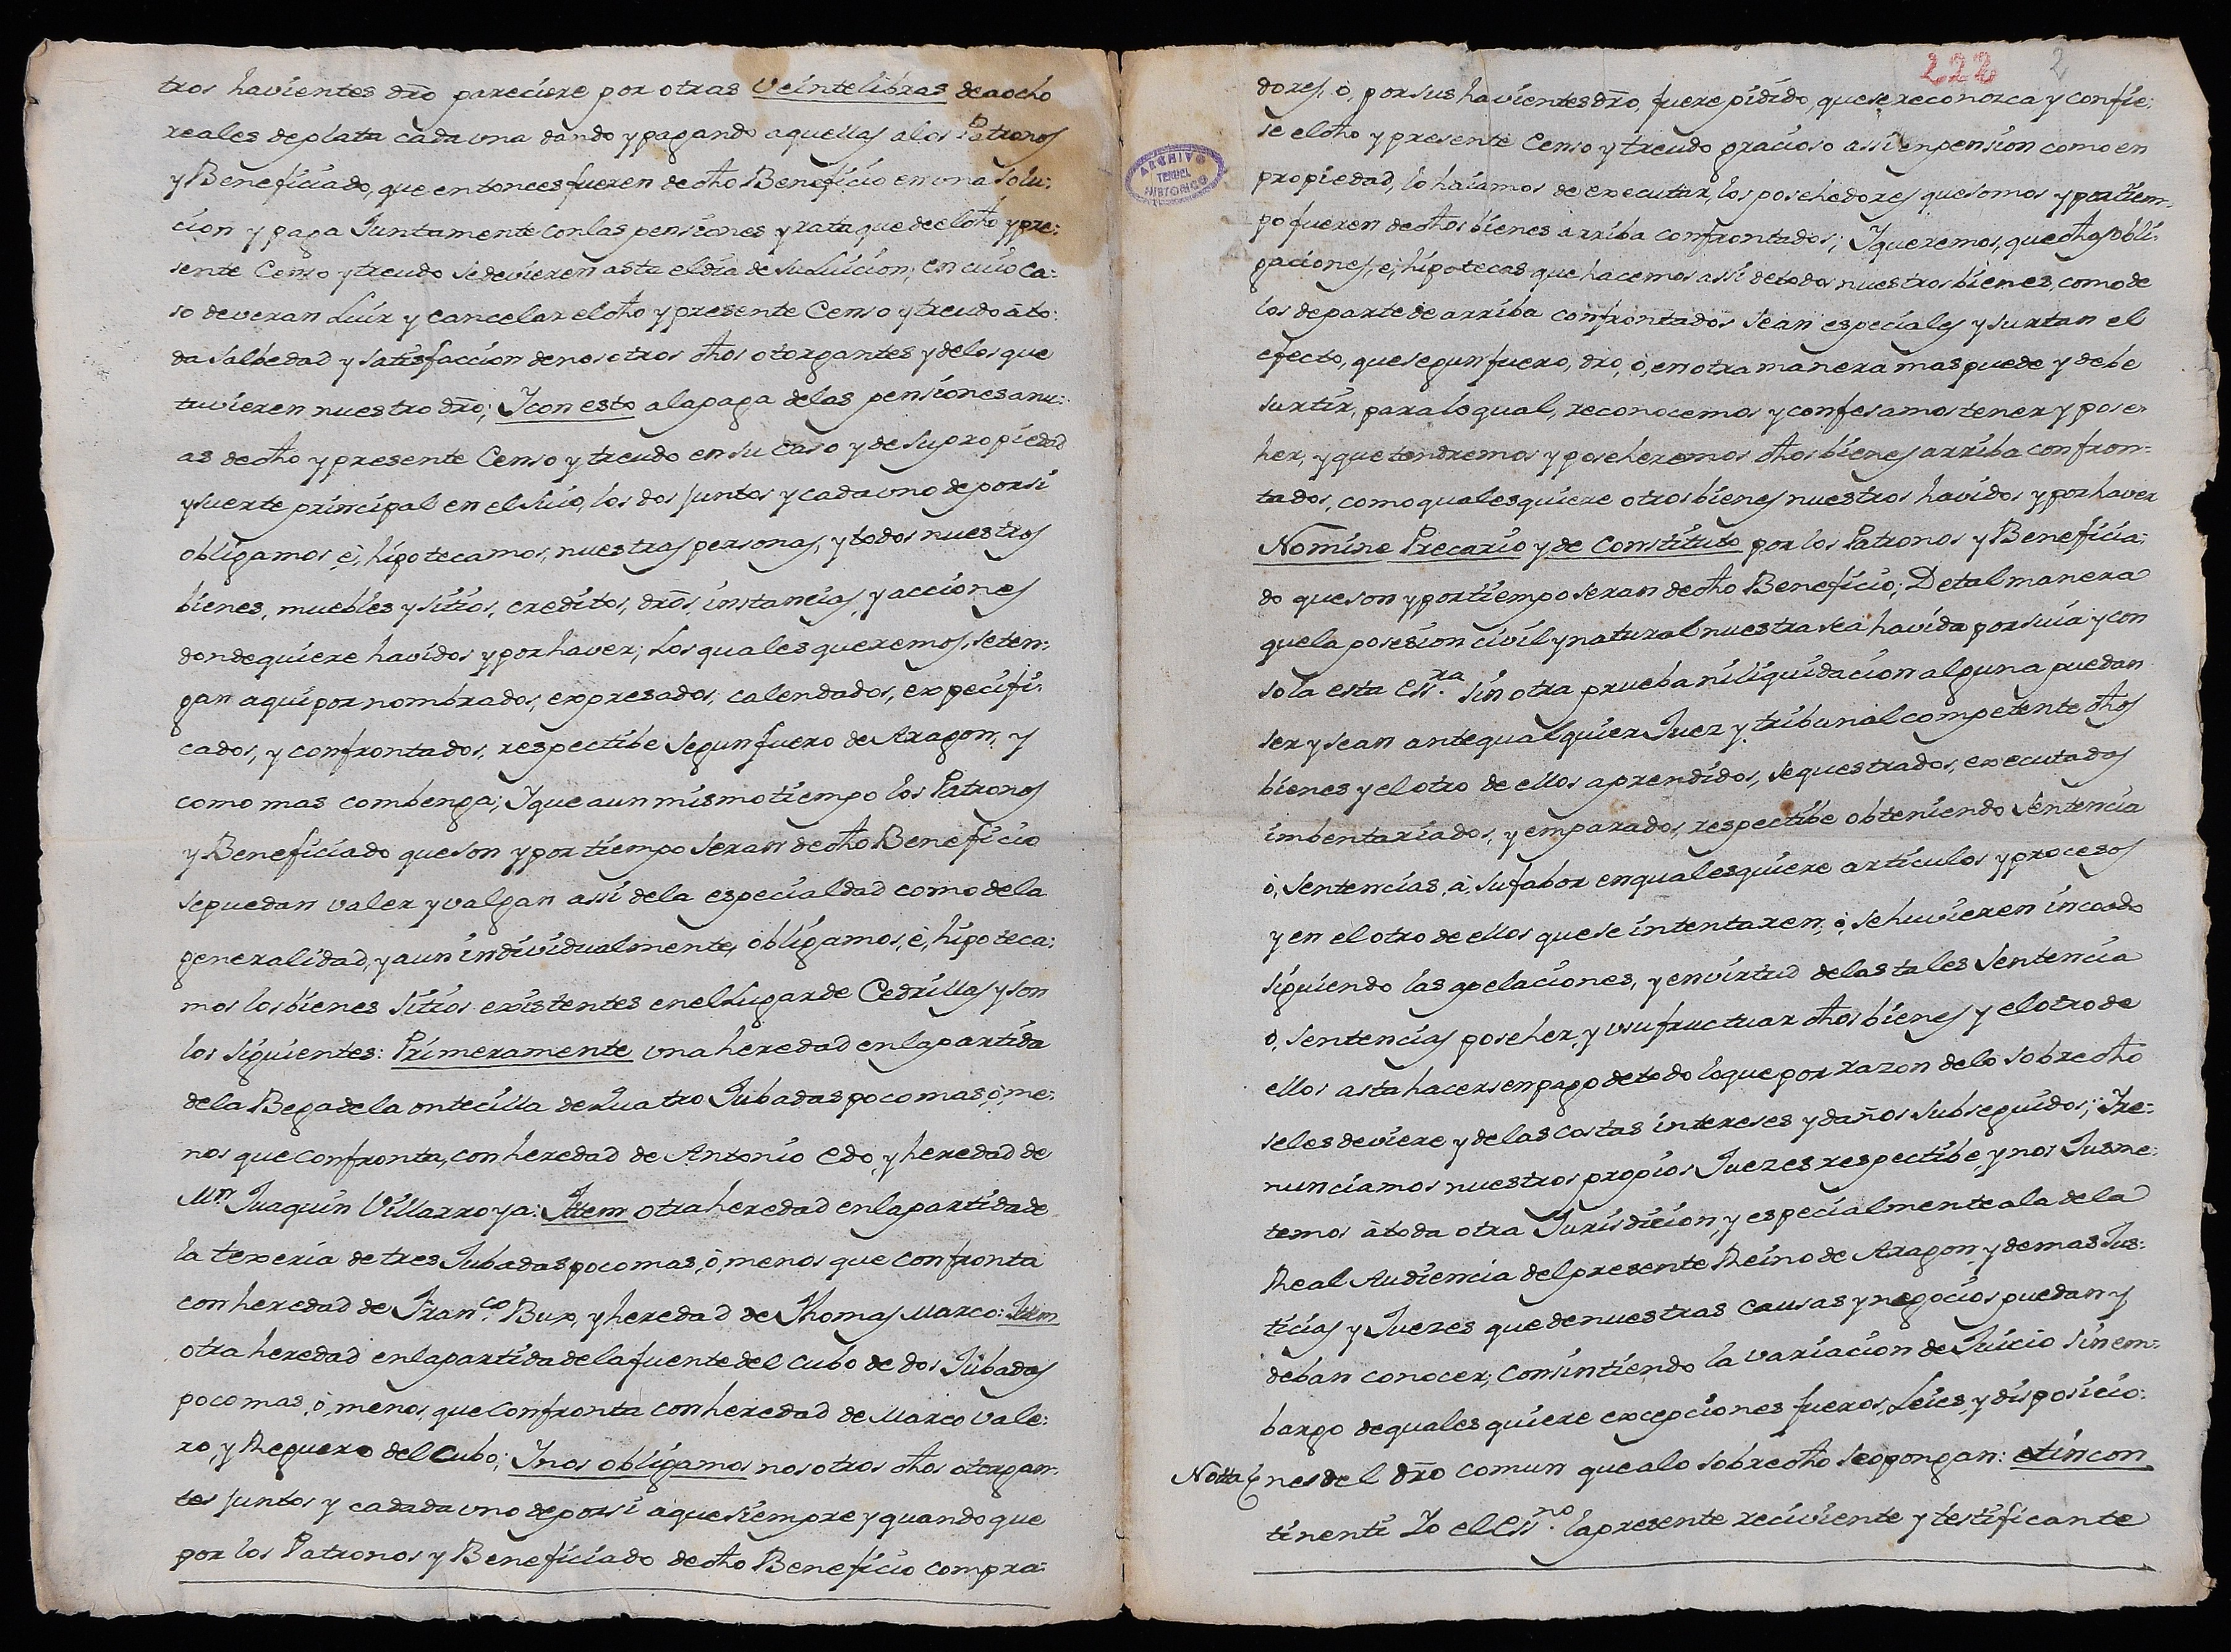 tros havientes dr̃o pareciere por otras veinte libras de a ocho
reales de plata cada una dando y pagando aquellas a los Patronos
y Beneficiado, que entonces fueren de dho Beneficio en una solu:
cion y paga Juntamente con las pensiones y rata que de el dho y pre:
sente Censo y treudo se devieren asta el dia de su Luicion; en cuio ca:
so deveran Luir y cancelar el dho y presente Censo y treudo à to:
da salbedad y satisfaccion de nosotros dhos otorgantes y de los que
tuvieren nuestro dr̃o; Y con esto a la paga de las pensiones anu:
as de dho y presente Censo y treudo en su caso y de su propiedad
y suerte principal en el suio, los dos juntos y cada uno de por si
obligamos è, hipotecamos, nuestras personas, y todos nuestros
bienes, muebles y sitios, creditos, dr̃os, instancias, y acciones
donde quiere havidos y por haver; Los quales queremos, se ten:
gan aqui por nombrados, expresados, calendados, expecifi:
cados, y confrontados, respectibe segun fuero de Aragon, y
como mas combenga; Y que a un mismo tiempo los Patronos
y Beneficiado que son y por tiempo seran de dho Beneficio
se puedan valer y valgan assi de la especialdad como de la
generalidad, y aun individualmente, obligamos, è, hipoteca:
mos los bienes sitios existentes en el Lugar de Cedrillas y son
los siguientes: Primeramente una heredad en la partida
de la Bega de la ontecilla de Quatro Jubadas poco mas, ò, me:
nos que confronta, con heredad de Antonio Edo, y heredad de
Mn Juaquin Villarroya: Ittem otra heredad en la partida de
la texeria de tres Jubadas poco mas, ò, menos que confronta
con heredad de Fran.co Bux, y heredad de Thomas Marco: Ittem
otra heredad en la partida de la fuente del Cubo de dos Jubadas
poco mas, ò, menos, que confronta con heredad de Marco Vale:
ro, y Reguero del Cubo; Y nos obligamos nosotros dhos otorgan:
tes juntos y cadada uno de por si a que siempre y quando que
por los Patronos y Beneficiado de dho Beneficio compra:
222 2
dores, ò, por sus havientes dr̃o, fuere pidido, que se reconozca y confie:
se el dho y presente Censo y treudo gracioso assi en pension como en
propiedad, lo haiamos de executar, los posehedores que somos y por tiem:
po fueren de dhos bienes arriba confrontados; Y queremos, que dhas obli:
gaciones, è, hipotecas que hacemos assi de todos nuestros bienes, como de
los de parte de arriba confrontados sean especiales y surtan el
efecto, que segun fuero, dr̃o, ò, en otra manera mas puede y debe
surtir, para lo qual, reconocemos y confesamos tener y pose:
her, y que tendremos y poseheremos dhos bienes arriba confron:
tados, como qualesquiere otros bienes nuestros havidos y por haver
Nomine Precario y de Constituto por los Patronos y Beneficia:
do que son y por tiempo seran de dho Beneficio; De tal manera
que la posesion civil y natural nuestra sea havida por suia y con
sola esta Ess.ra sin otra prueba ni liquidacion alguna puedan
ser y sean ante qualquier Juez y tribunal competente dhos
bienes y el otro de ellos aprendidos, sequestrados, executados
imbentariados, y emparados, respectibe obteniendo Sentencia
ò, Sentencias, à, su fabor en qualesquiere articulos y procesos
y en el otro de ellos que se intentaren, ò, se huvieren incoado
siguiendo las apelaciones, y en virtud de las tales Sentencia
ò, Sentencias poseher, y usufructuar dhos bienes y el otro de
ellos asta hacersen pago de todo lo que por razon de lo sobredho
se les deviere y de las costas intereses y daños subseguidos; Y re:
nunciamos nuestros propios Juezes respectibe, y nos Jusme:
temos à toda otra Jurisdicion, y especialmente a la de la
Real Audiencia del presente Reino de Aragon, y demas Jus:
ticias y Juezes que de nuestras causas y negocios puedan y
deban conocer; Consintiendo la variacion de Juicio sin em:
bargo de quales quiere excepciones fueros, Leies, y disposicio:
Notta nes del dr̃o comun que a lo sobredho se opongan: et in con
tinenti Yo el Ess.no la presente reciviente y testificante
ARCHIVO
TERUEL
HISTORICO